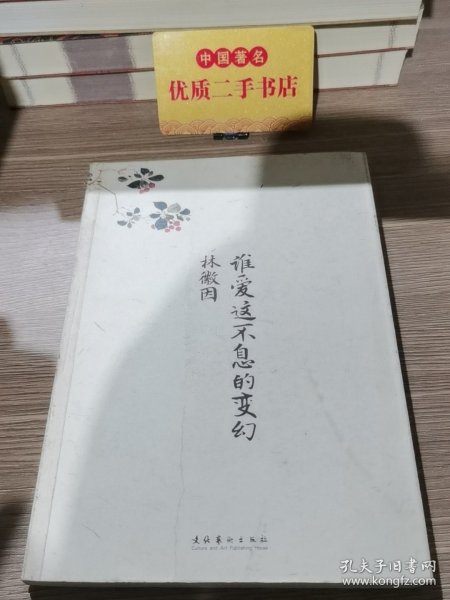 中国著名
优质二手书店
谁爱这不息的变幻
林徽因
文化艺术出版社
Culture and Art Publishing House
孔夫子旧书网
www.kongfz.com